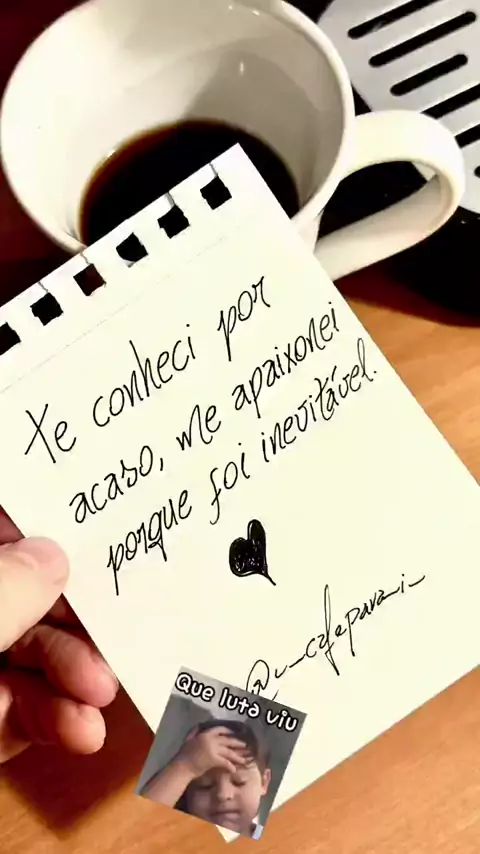 te conheci por
acaso, me apaixonei
porque foi inevitável.
Que luta viu